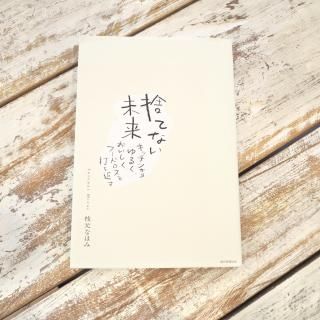 捨てない
未来
キッチンから、
ゆるく
おいしく
フードロスを
打ち返す
枝元なほみ